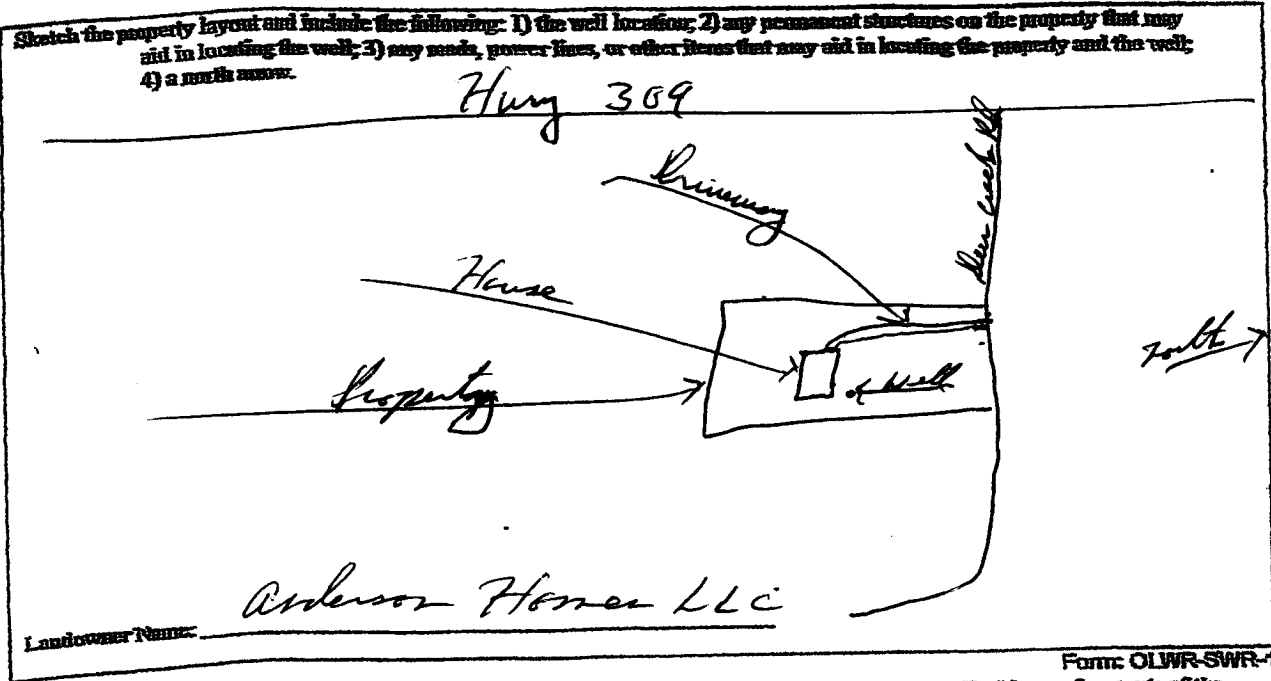 Sketch the property layout and include the following: 1) the well location; 2) any permanent structures on the property that may
aid in locating the well; 3) any roads, power lines, or other items that may aid in locating the property and the well;
4) a north arrow.
Hwy 309
Driveway
Deer Creek Rd
House
North
Property
Well
Anderson Homes LLC
Landowner Name:
Form: OLWR-SWR-1